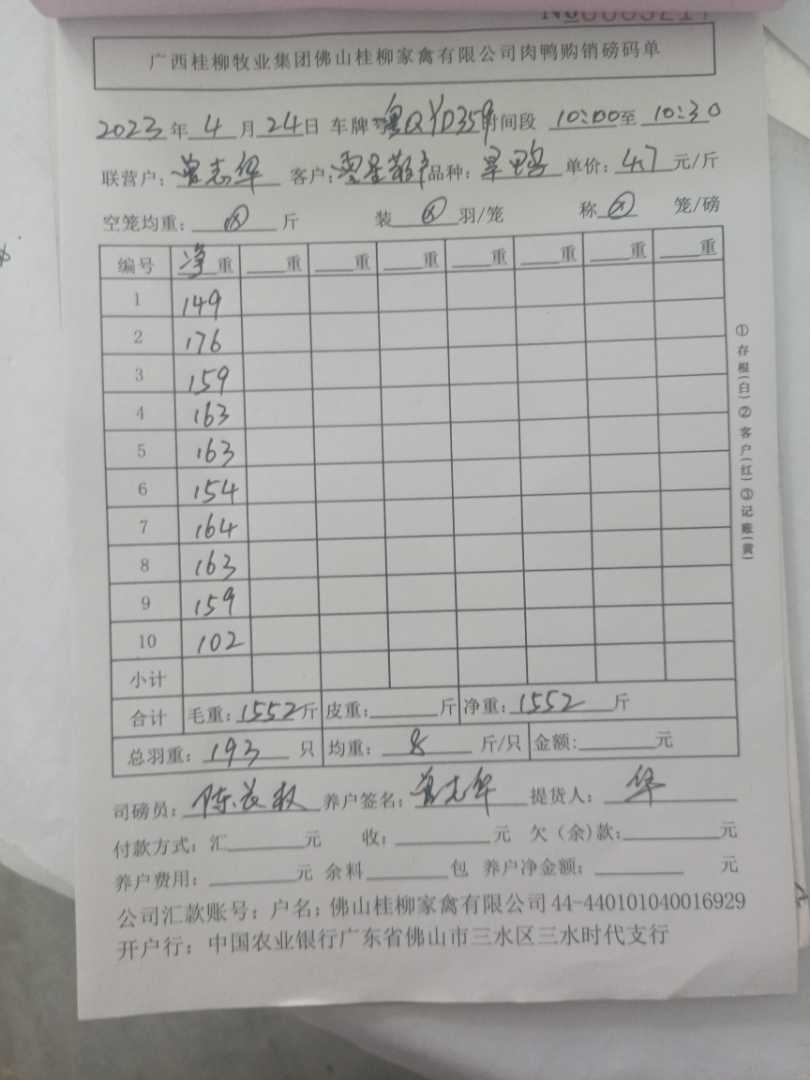 广西桂柳牧业集团佛山桂柳家禽有限公司肉鸭购销磅码单
2023年 4 月 24日 车牌号 粤QYD359 时间段 10:00至 10:30
联营户: 曾志华 客户: 品种: 旱鸭 单价: 4.7 元/斤
空笼均重: 斤 装 羽/笼 称 笼/磅
编号 净重 重 重 重 重 重 重 重
1 149
2 176
3 159
4 163
5 163
6 154
7 164
8 163
9 159
10 102
小计
合计 毛重: 1552斤 皮重: 斤 净重: 1552 斤
总羽重: 193 只 均重: 8 斤/只 金额: 元
司磅员: 养户签名: 曾志华 提货人: 华
付款方式: 汇 元 收: 元 欠(余)款: 元
养户费用: 元 余料 包 养户净金额: 元
公司汇款账号: 户名: 佛山桂柳家禽有限公司 44-440101040016929
开户行: 中国农业银行广东省佛山市三水区三水时代支行
①存根(白)②客户(红)③记账(黄)